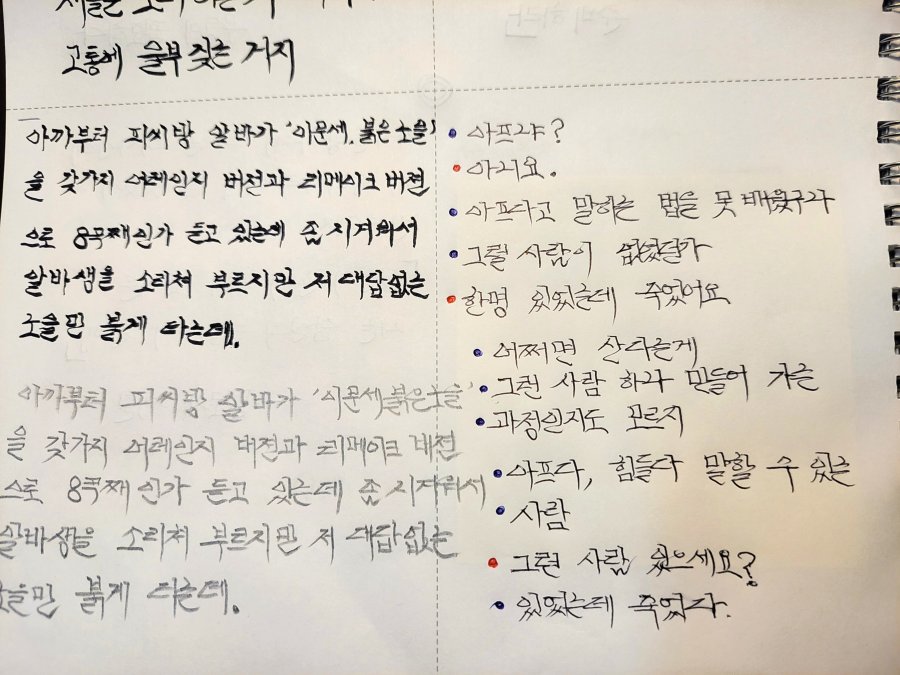 고통에 울부 짖는 거지
아까부터 피씨방 알바가 '이문세.붉은노을'
을 갖가지 어레인지 버전과 리메이크 버전
으로 8곡째인가 듣고 있는데 좀 지겨워서
알바생을 소리쳐 부르지만 저 대답없는
노을만 붉게 타는데.
아까부터 피씨방 알바가 '이문세.붉은노을'
을 갖가지 어레인지 버전과 리메이크 버전
으로 8곡째인가 듣고 있는데 좀 지겨워서
알바생을 소리쳐 부르지만 저 대답없는
노을만 붉게 타는데.
아프냐?
아니요.
아프다고 말하는 법을 못 배웠구나
그럴 사람이 없었던가
한명 있었는데 죽었어요
어쩌면 산다는게
그런 사람 하나 만들어 가는
과정인지도 모르지
아프다, 힘들다 말할 수 있는
사람
그런 사람 있으세요?
있었는데 죽었다.